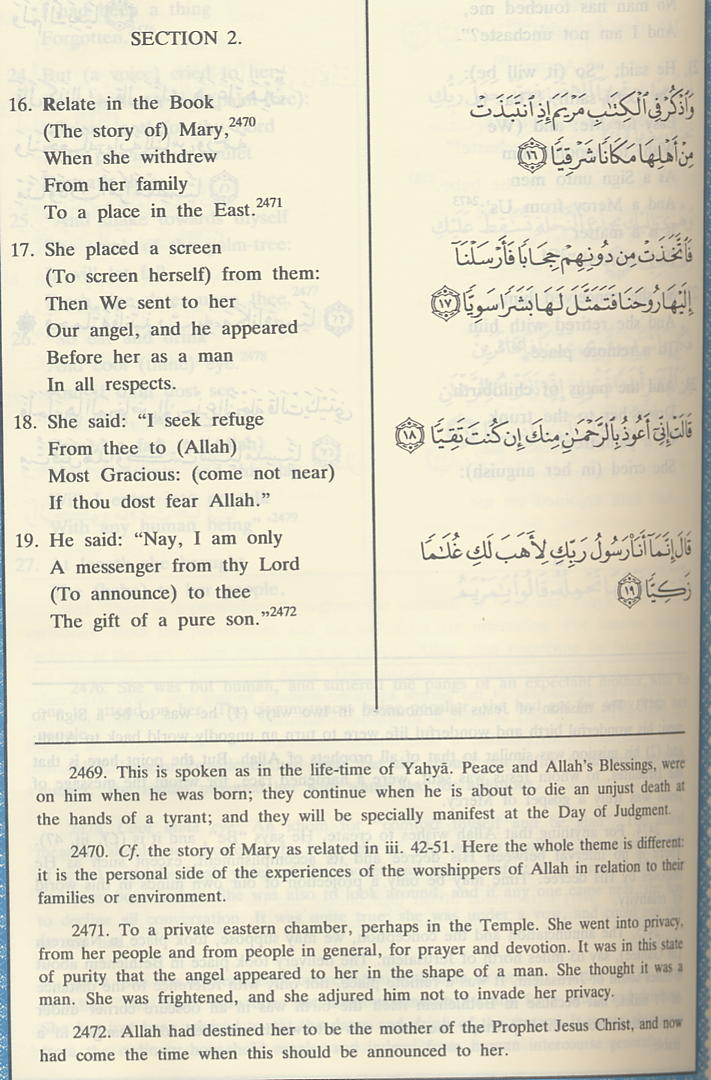 SECTION 2.
16. Relate in the Book
(The story of) Mary,2470
When she withdrew
From her family
To a place in the East.2471
17. She placed a screen
(To screen herself) from them:
Then We sent to her
Our angel, and he appeared
Before her as a man
In all respects.
18. She said: “I seek refuge
From thee to (Allah)
Most Gracious: (come not near)
If thou dost fear Allah.”
19. He said: “Nay, I am only
A messenger from thy Lord
(To announce) to thee
The gift of a pure son.”2472
وَٱذْكُرْ فِى ٱلْكِتَٰبِ مَرْيَمَ إِذِ ٱنتَبَذَتْ
مِنْ أَهْلِهَا مَكَانًا شَرْقِيًّا ١٦
فَٱتَّخَذَتْ مِن دُونِهِمْ حِجَابًا فَأَرْسَلْنَآ
إِلَيْهَا رُوحَنَا فَتَمَثَّلَ لَهَا بَشَرًا سَوِيًّا ١٧
قَالَتْ إِنِّىٓ أَعُوذُ بِٱلرَّحْمَٰنِ مِنكَ إِن كُنتَ تَقِيًّا ١٨
قَالَ إِنَّمَآ أَنَا۠ رَسُولُ رَبِّكِ لِأَهَبَ لَكِ غُلَٰمًا
زَكِيًّا ١٩
2469. This is spoken as in the life-time of Yaḥyā. Peace and Allah’s Blessings, were
on him when he was born; they continue when he is about to die an unjust death at
the hands of a tyrant; and they will be specially manifest at the Day of Judgment.
2470. Cf. the story of Mary as related in iii. 42-51. Here the whole theme is different:
it is the personal side of the experiences of the worshippers of Allah in relation to their
families or environment.
2471. To a private eastern chamber, perhaps in the Temple. She went into privacy,
from her people and from people in general, for prayer and devotion. It was in this state
of purity that the angel appeared to her in the shape of a man. She thought it was a
man. She was frightened, and she adjured him not to invade her privacy.
2472. Allah had destined her to be the mother of the Prophet Jesus Christ, and now
had come the time when this should be announced to her.